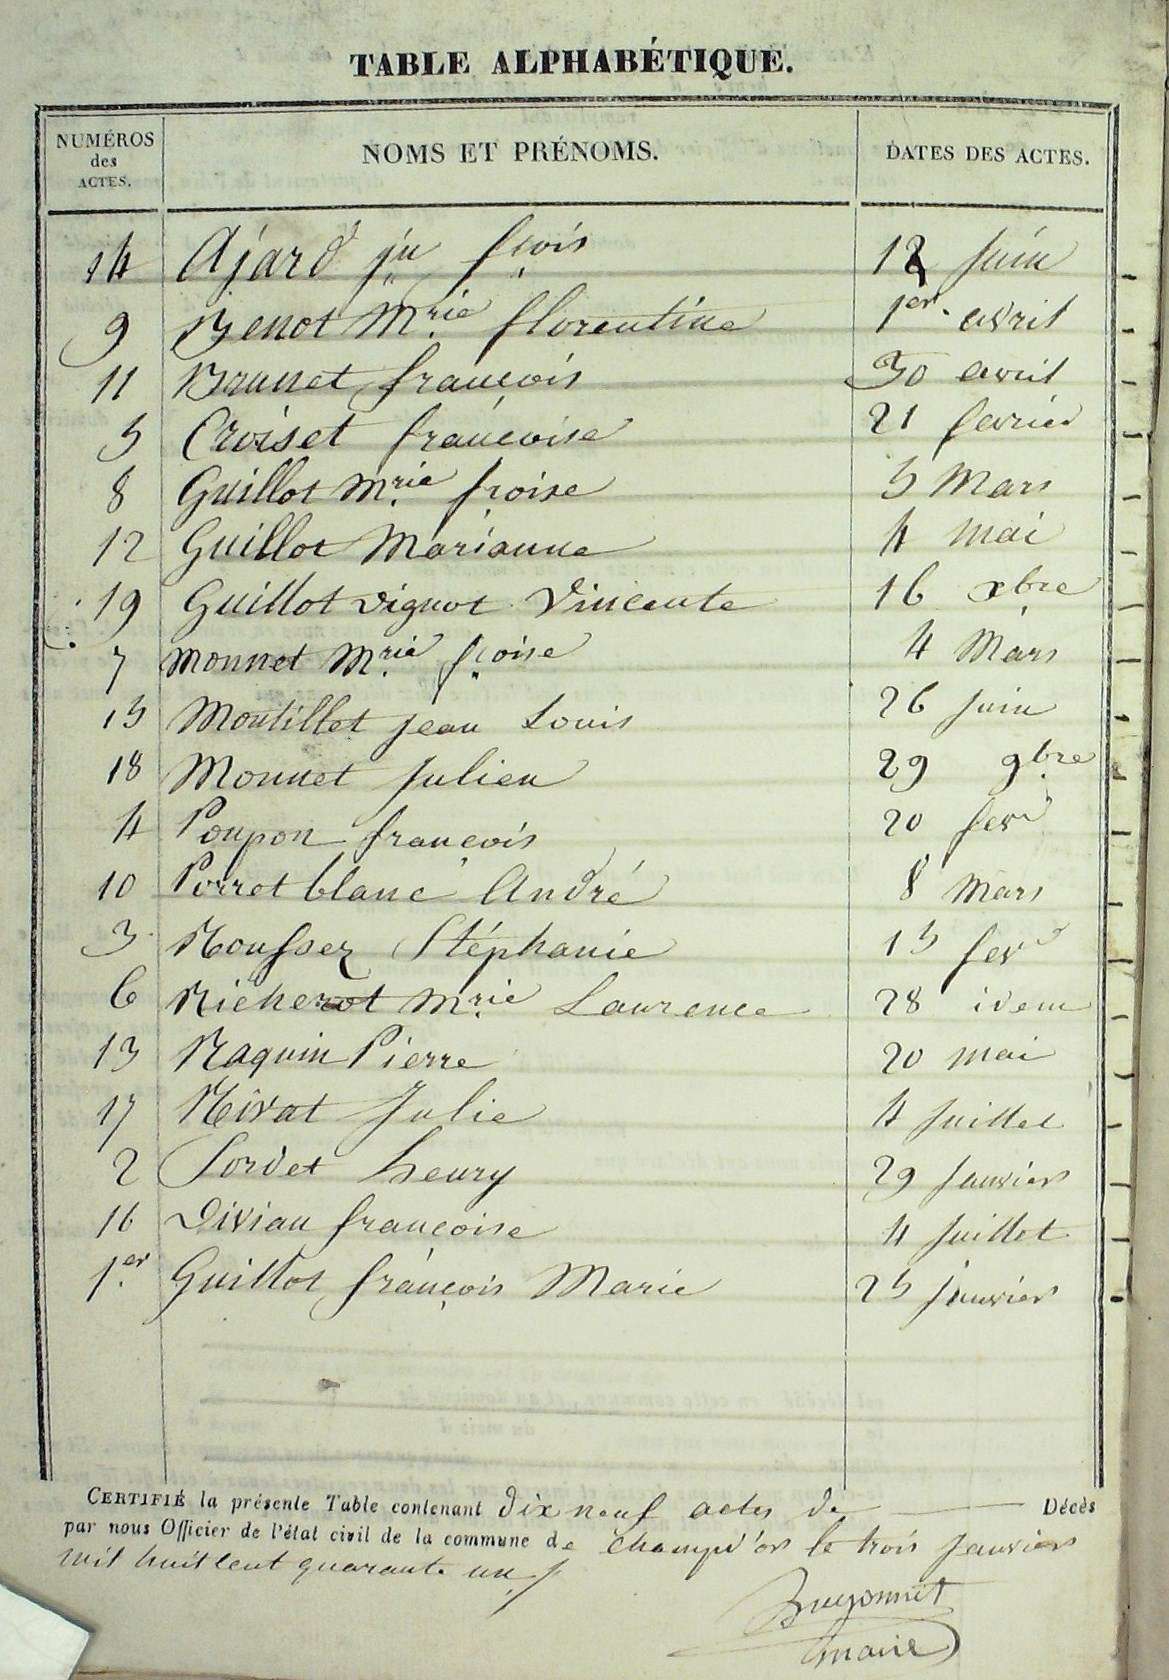 TABLE ALPHABÉTIQUE.
NUMÉROS des ACTES. NOMS ET PRÉNOMS. DATES DES ACTES.
14 Ajard jn fçois 12 juin
9 Benot Mrie florentine 1er avril
11 Brunet françois 30 avril
5 Croiset françoise 21 fevrier
8 Guillot Mrie fçoise 5 Mars
12 Guillot Marianne 4 mai
19 Guillot vignot Vincente 16 xbre
7 Monnet Mrie fçoise 4 Mars
15 Montillet jean Louis 26 juin
18 Monnet Julien 29 9bre
4 Poupon françois 20 fevr
10 Porret blanc André 8 Mars
3 Rousset Stéphanie 15 fevr
6 Richerot Mrie Laurence 28 idem
13 Raquin Pierre 20 mai
17 Rivat Julie 4 Juillet
2 Sordet henry 29 Janvier
16 Vivian françoise 4 Juillet
1er Guillot françois Marie 25 janvier
CERTIFIÉ la présente Table contenant dix neuf actes de Décès
par nous Officier de l'état civil de la commune de champd'or le trois Janvier
mil huit cent quarante un
maire